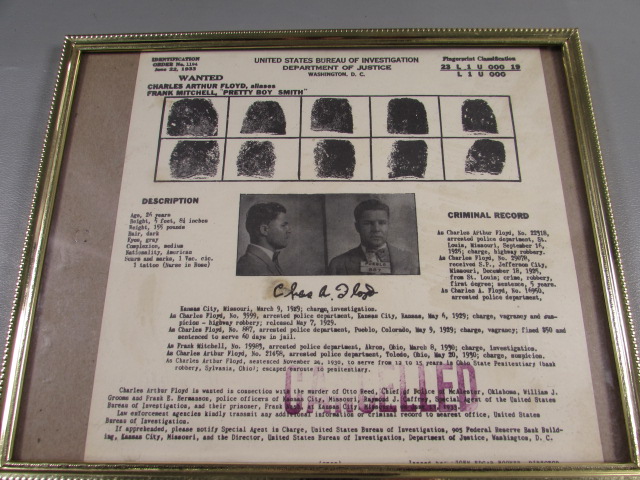 IDENTIFICATION
ORDER No. 1194
June 22, 1933
UNITED STATES BUREAU OF INVESTIGATION
DEPARTMENT OF JUSTICE
WASHINGTON, D. C.
Fingerprint Classification
23 L 1 U 000 19
L 1 U 000
WANTED
CHARLES ARTHUR FLOYD, aliases
FRANK MITCHELL, "PRETTY BOY SMITH"
DESCRIPTION
Age, 26 years
Height, 5 feet, 8¼ inches
Weight, 155 pounds
Hair, dark
Eyes, gray
Complexion, medium
Nationality, American
Scars and marks, 1 Vac. cic.
1 tattoo (Nurse in Rose)
Chas A. Floyd
CRIMINAL RECORD
As Charles Arthur Floyd, No. 22318,
arrested police department, St.
Louis, Missouri, September 16,
1925; charge, highway robbery.
As Charles Floyd, No. 29078,
received S.P., Jefferson City,
Missouri, December 18, 1925,
from St. Louis; crime, robbery,
first degree; sentence, 5 years.
As Charles A. Floyd, No. 16950,
arrested police department,
Kansas City, Missouri, March 9, 1929; charge, investigation.
As Charles Floyd, No. 3999, arrested police department, Kansas City, Kansas, May 6, 1929; charge, vagrancy and sus-
picion - highway robbery; released May 7, 1929.
As Charles Floyd, No. 887, arrested police department, Pueblo, Colorado, May 9, 1929; charge, vagrancy; fined $50 and
sentenced to serve 60 days in jail.
As Frank Mitchell, No. 19983, arrested police department, Akron, Ohio, March 8, 1930; charge, investigation.
As Charles Arthur Floyd, No. 21458, arrested police department, Toledo, Ohio, May 20, 1930; charge, suspicion.
As Charles Arthur Floyd, sentenced November 24, 1930, to serve from 12 to 15 years in Ohio State Penitentiary (bank
robbery, Sylvania, Ohio); escaped enroute to penitentiary.
CANCELLED
Charles Arthur Floyd is wanted in connection with the murder of Otto Reed, Chief of Police of McAlester, Oklahoma, William J.
Grooms and Frank E. Hermanson, police officers of Kansas City, Missouri, Raymond J. Caffrey, Special Agent of the United States
Bureau of Investigation, and their prisoner, Frank Kansas City, Missouri, on June 17, 1933.
Law enforcement agencies kindly transmit any additional information or criminal record to nearest office, United States
Bureau of Investigation.
If apprehended, please notify Special Agent in Charge, United States Bureau of Investigation, 905 Federal Reserve Bank Build-
ing, Kansas City, Missouri, and the Director, United States Bureau of Investigation, Department of Justice, Washington, D. C.